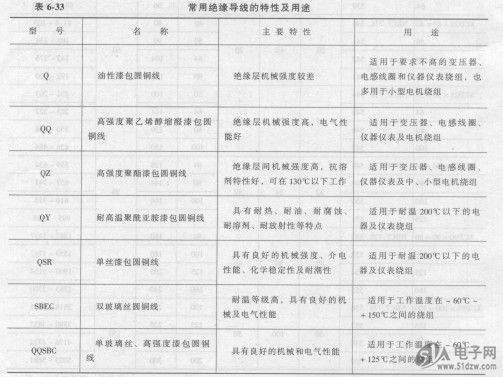 表 6-33 常用绝缘导线的特性及用途
型 号 名 称 主 要 特 性 用 途
Q 油性漆包圆铜线 绝缘层机械强度较差 适用于要求不高的变压器、
电感线圈和仪器仪表绕组，也
多用于小型电机绕组
QQ 高强度聚乙烯醇缩醛漆包圆
铜线 绝缘层机械强度高，电气性
能好 适用于变压器、电感线圈、
仪器仪表及电机绕组
QZ 高强度聚酯漆包圆铜线 绝缘层间机械强度高，抗溶
剂特性好，可在 130℃以下工作 适用于变压器、电感线圈、
仪器仪表及中、小型电机绕组
QY 耐高温聚酰亚胺漆包圆铜线 具有耐热、耐油、耐腐蚀、
耐溶剂、耐放射性等特点 适用于耐温 200℃以下的电
器及仪表绕组
QSR 单丝漆包圆铜线 具有良好的机械强度、介电
性能、化学稳定性及耐潮性 适用于耐温 200℃以下的电
器及仪表绕组
SBEC 双玻璃丝圆铜线 耐温等级高，具有良好的机
械及电气性能 适用于工作温度在 -60℃~
+150℃之间的绕组
QQSBC 单玻璃丝、高强度漆包圆铜
线 具有良好的机械和电气性能 适用于工作温度在 -60℃~
+125℃之间的
电子网
www.51dzw.com